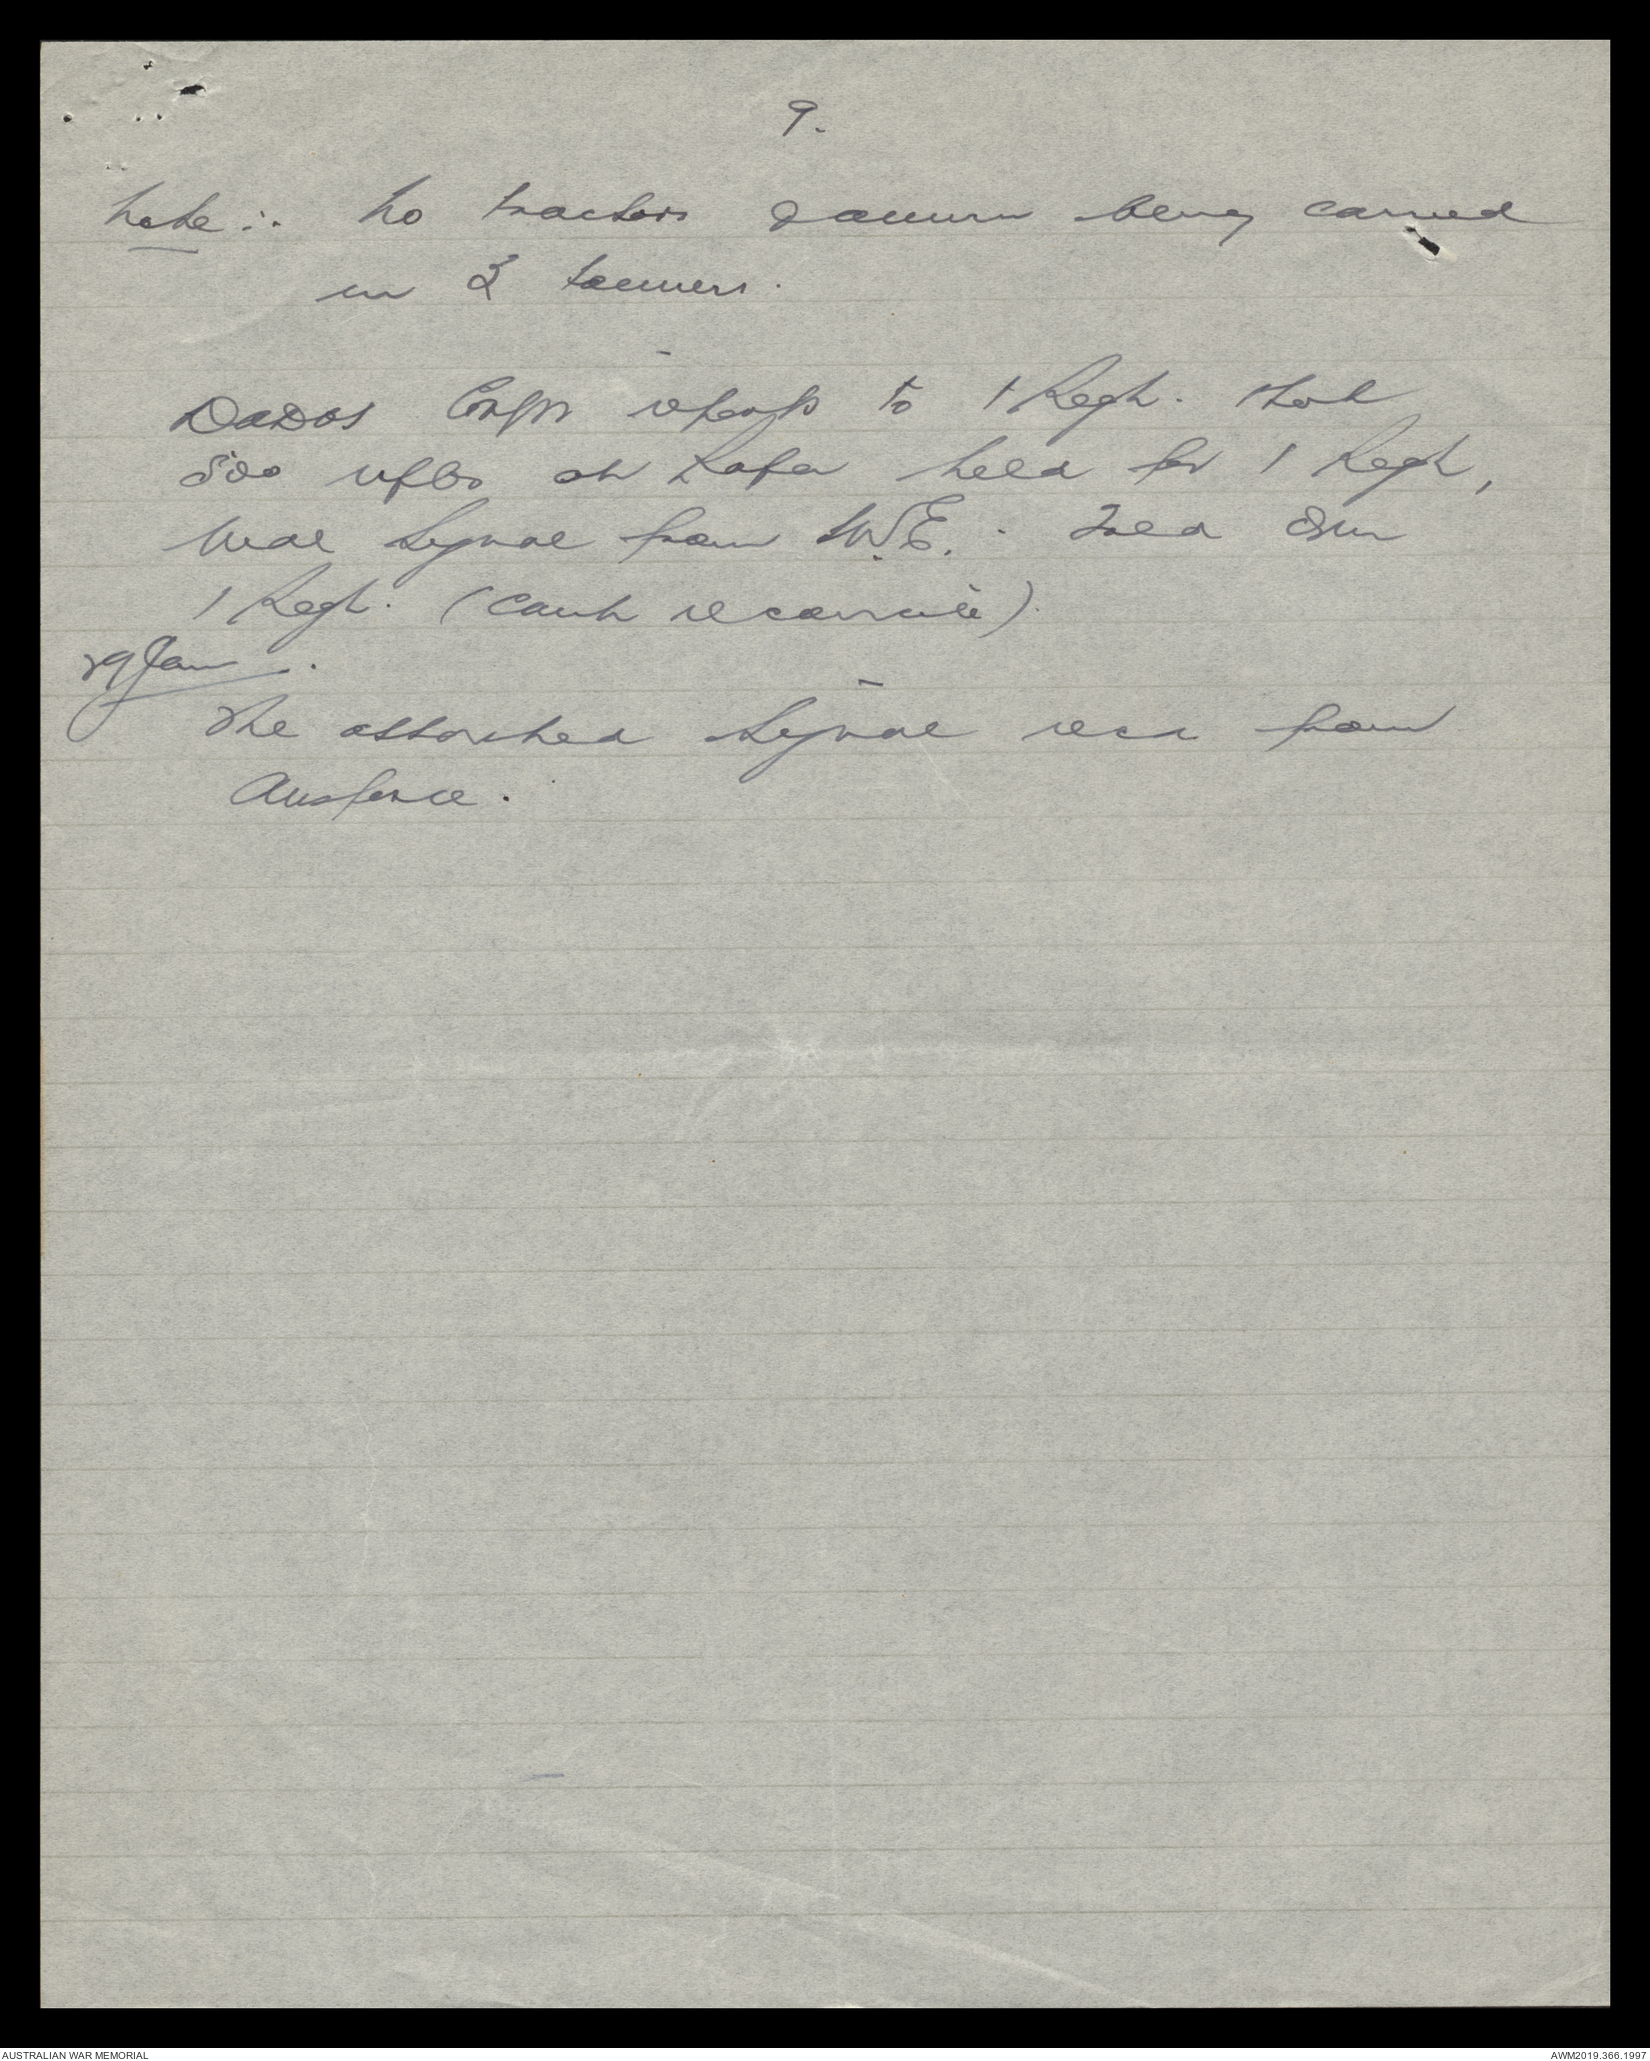 9.
Note :- No tractors & ammn being carried
in 3 tonners.
DADOS Corps reports to 1 Regt. that
500 rifles at Rafa held for 1 Regt,
Signal from W.E. . Told
1 Regt. (Can't reconcile).
29 Jan .
The attached signal recd from
Ausforce.
AUSTRALIAN WAR MEMORIAL
AWM2019.366.1997